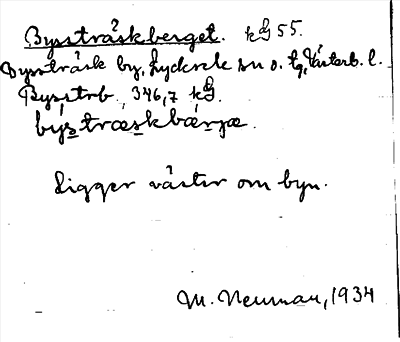 Bysträskberget. kG 55.
Bysträsk by, Lycksele sn o. tg, Västerb. l.
Bysstrb, 346,7 kG.
býstræskbærjæ.
Ligger väster om byn.
M. Neuman, 1934